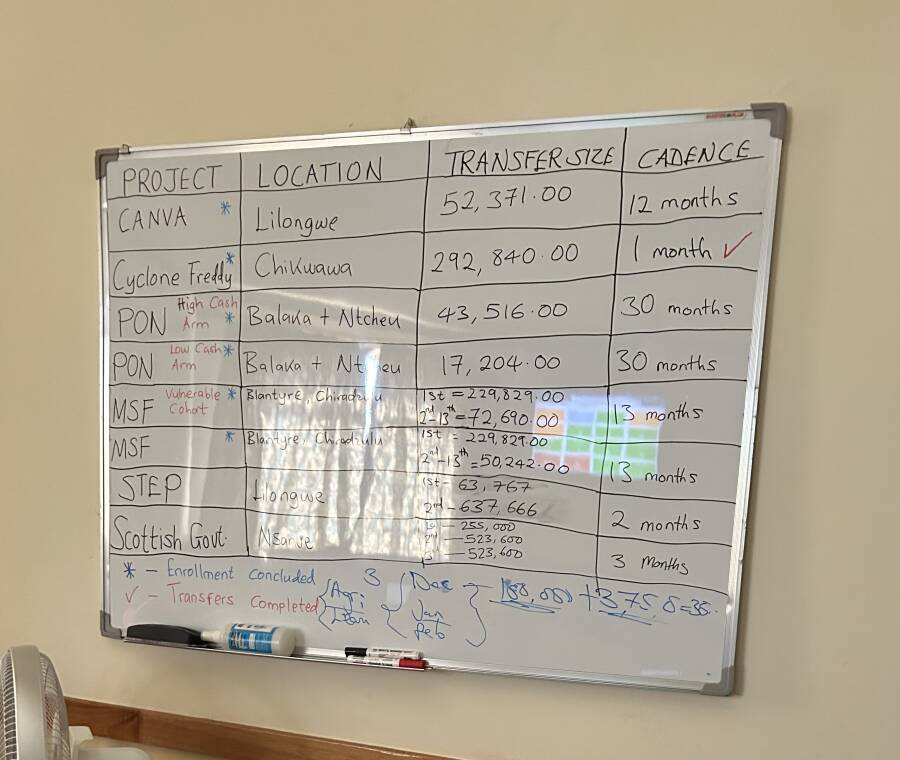 PROJECT LOCATION TRANSFER SIZE CADENCE
CANVA * Lilongwe 52,371.00 12 months
Cyclone Freddy * Chikwawa 292,840.00 1 month ✓
PON High Cash Arm * Balaka + Ntcheu 43,516.00 30 months
PON Low Cash Arm * Balaka + Ntcheu 17,204.00 30 months
MSF Vulnerable Cohort * Blantyre, Chiradzulu 1st = 229,829.00 13 months
2nd-13th = 72,690.00
MSF * Blantyre, Chiradzulu 1st = 229,829.00 13 months
2nd-13th = 50,242.00
STEP Lilongwe 1st - 63,767 2 months
2nd - 637,666
Scottish Govt. Nsanje 1st - 255,000 3 Months
2nd - 523,600
3rd - 523,600
* - Enrollment Concluded
✓ - Transfers Completed
3
Dec
Jan
feb